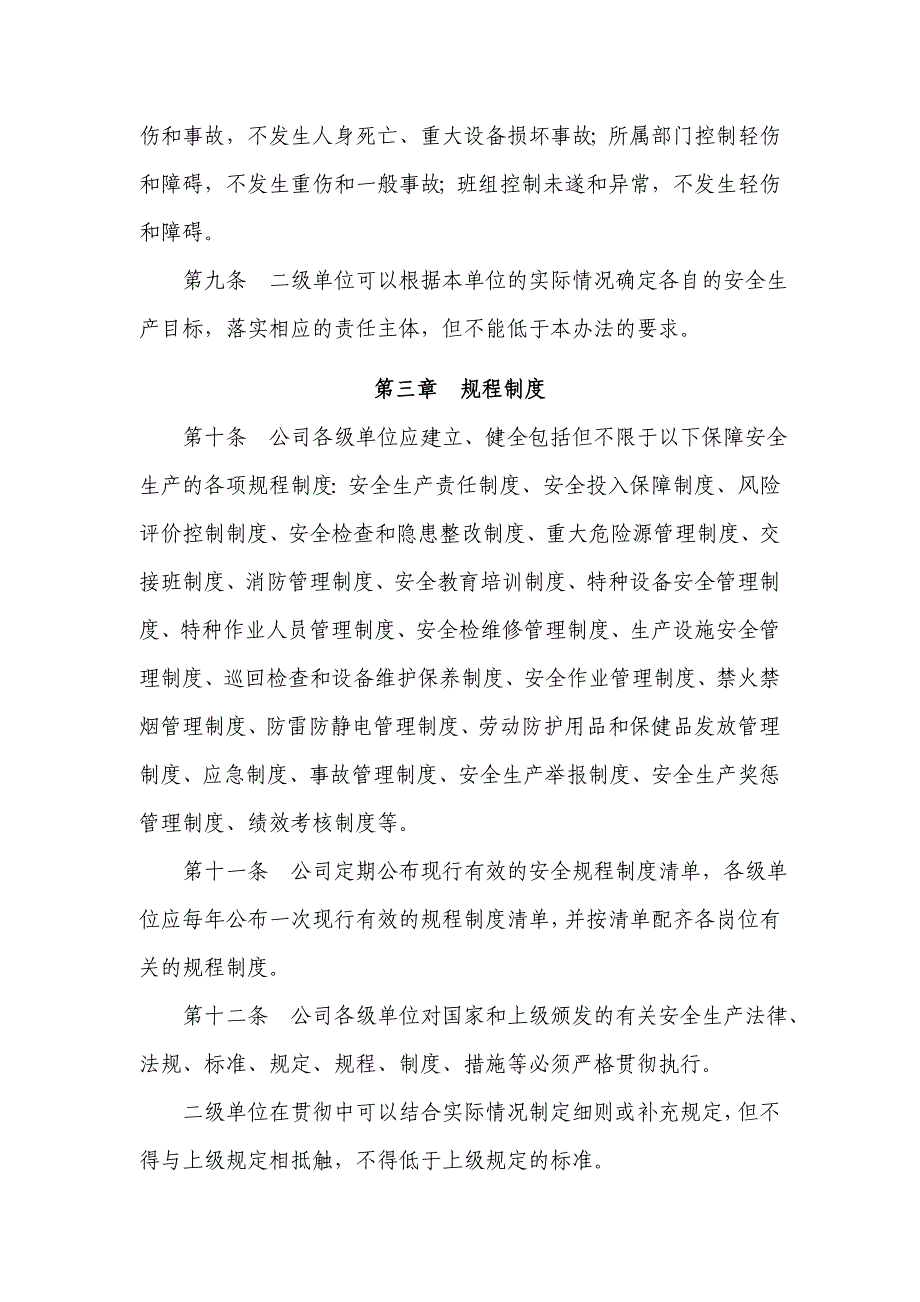 伤和事故，不发生人身死亡、重大设备损坏事故；所属部门控制轻伤
和障碍，不发生重伤和一般事故；班组控制未遂和异常，不发生轻伤
和障碍。
第九条　二级单位可以根据本单位的实际情况确定各自的安全生
产目标，落实相应的责任主体，但不能低于本办法的要求。
第三章　规程制度
第十条　公司各级单位应建立、健全包括但不限于以下保障安全
生产的各项规程制度：安全生产责任制度、安全投入保障制度、风险
评价控制制度、安全检查和隐患整改制度、重大危险源管理制度、交
接班制度、消防管理制度、安全教育培训制度、特种设备安全管理制
度、特种作业人员管理制度、安全检维修管理制度、生产设施安全管
理制度、巡回检查和设备维护保养制度、安全作业管理制度、禁火禁
烟管理制度、防雷防静电管理制度、劳动防护用品和保健品发放管理
制度、应急制度、事故管理制度、安全生产举报制度、安全生产奖惩
管理制度、绩效考核制度等。
第十一条　公司定期公布现行有效的安全规程制度清单，各级单
位应每年公布一次现行有效的规程制度清单，并按清单配齐各岗位有
关的规程制度。
第十二条　公司各级单位对国家和上级颁发的有关安全生产法律、
法规、标准、规定、规程、制度、措施等必须严格贯彻执行。
二级单位在贯彻中可以结合实际情况制定细则或补充规定，但不
得与上级规定相抵触，不得低于上级规定的标准。